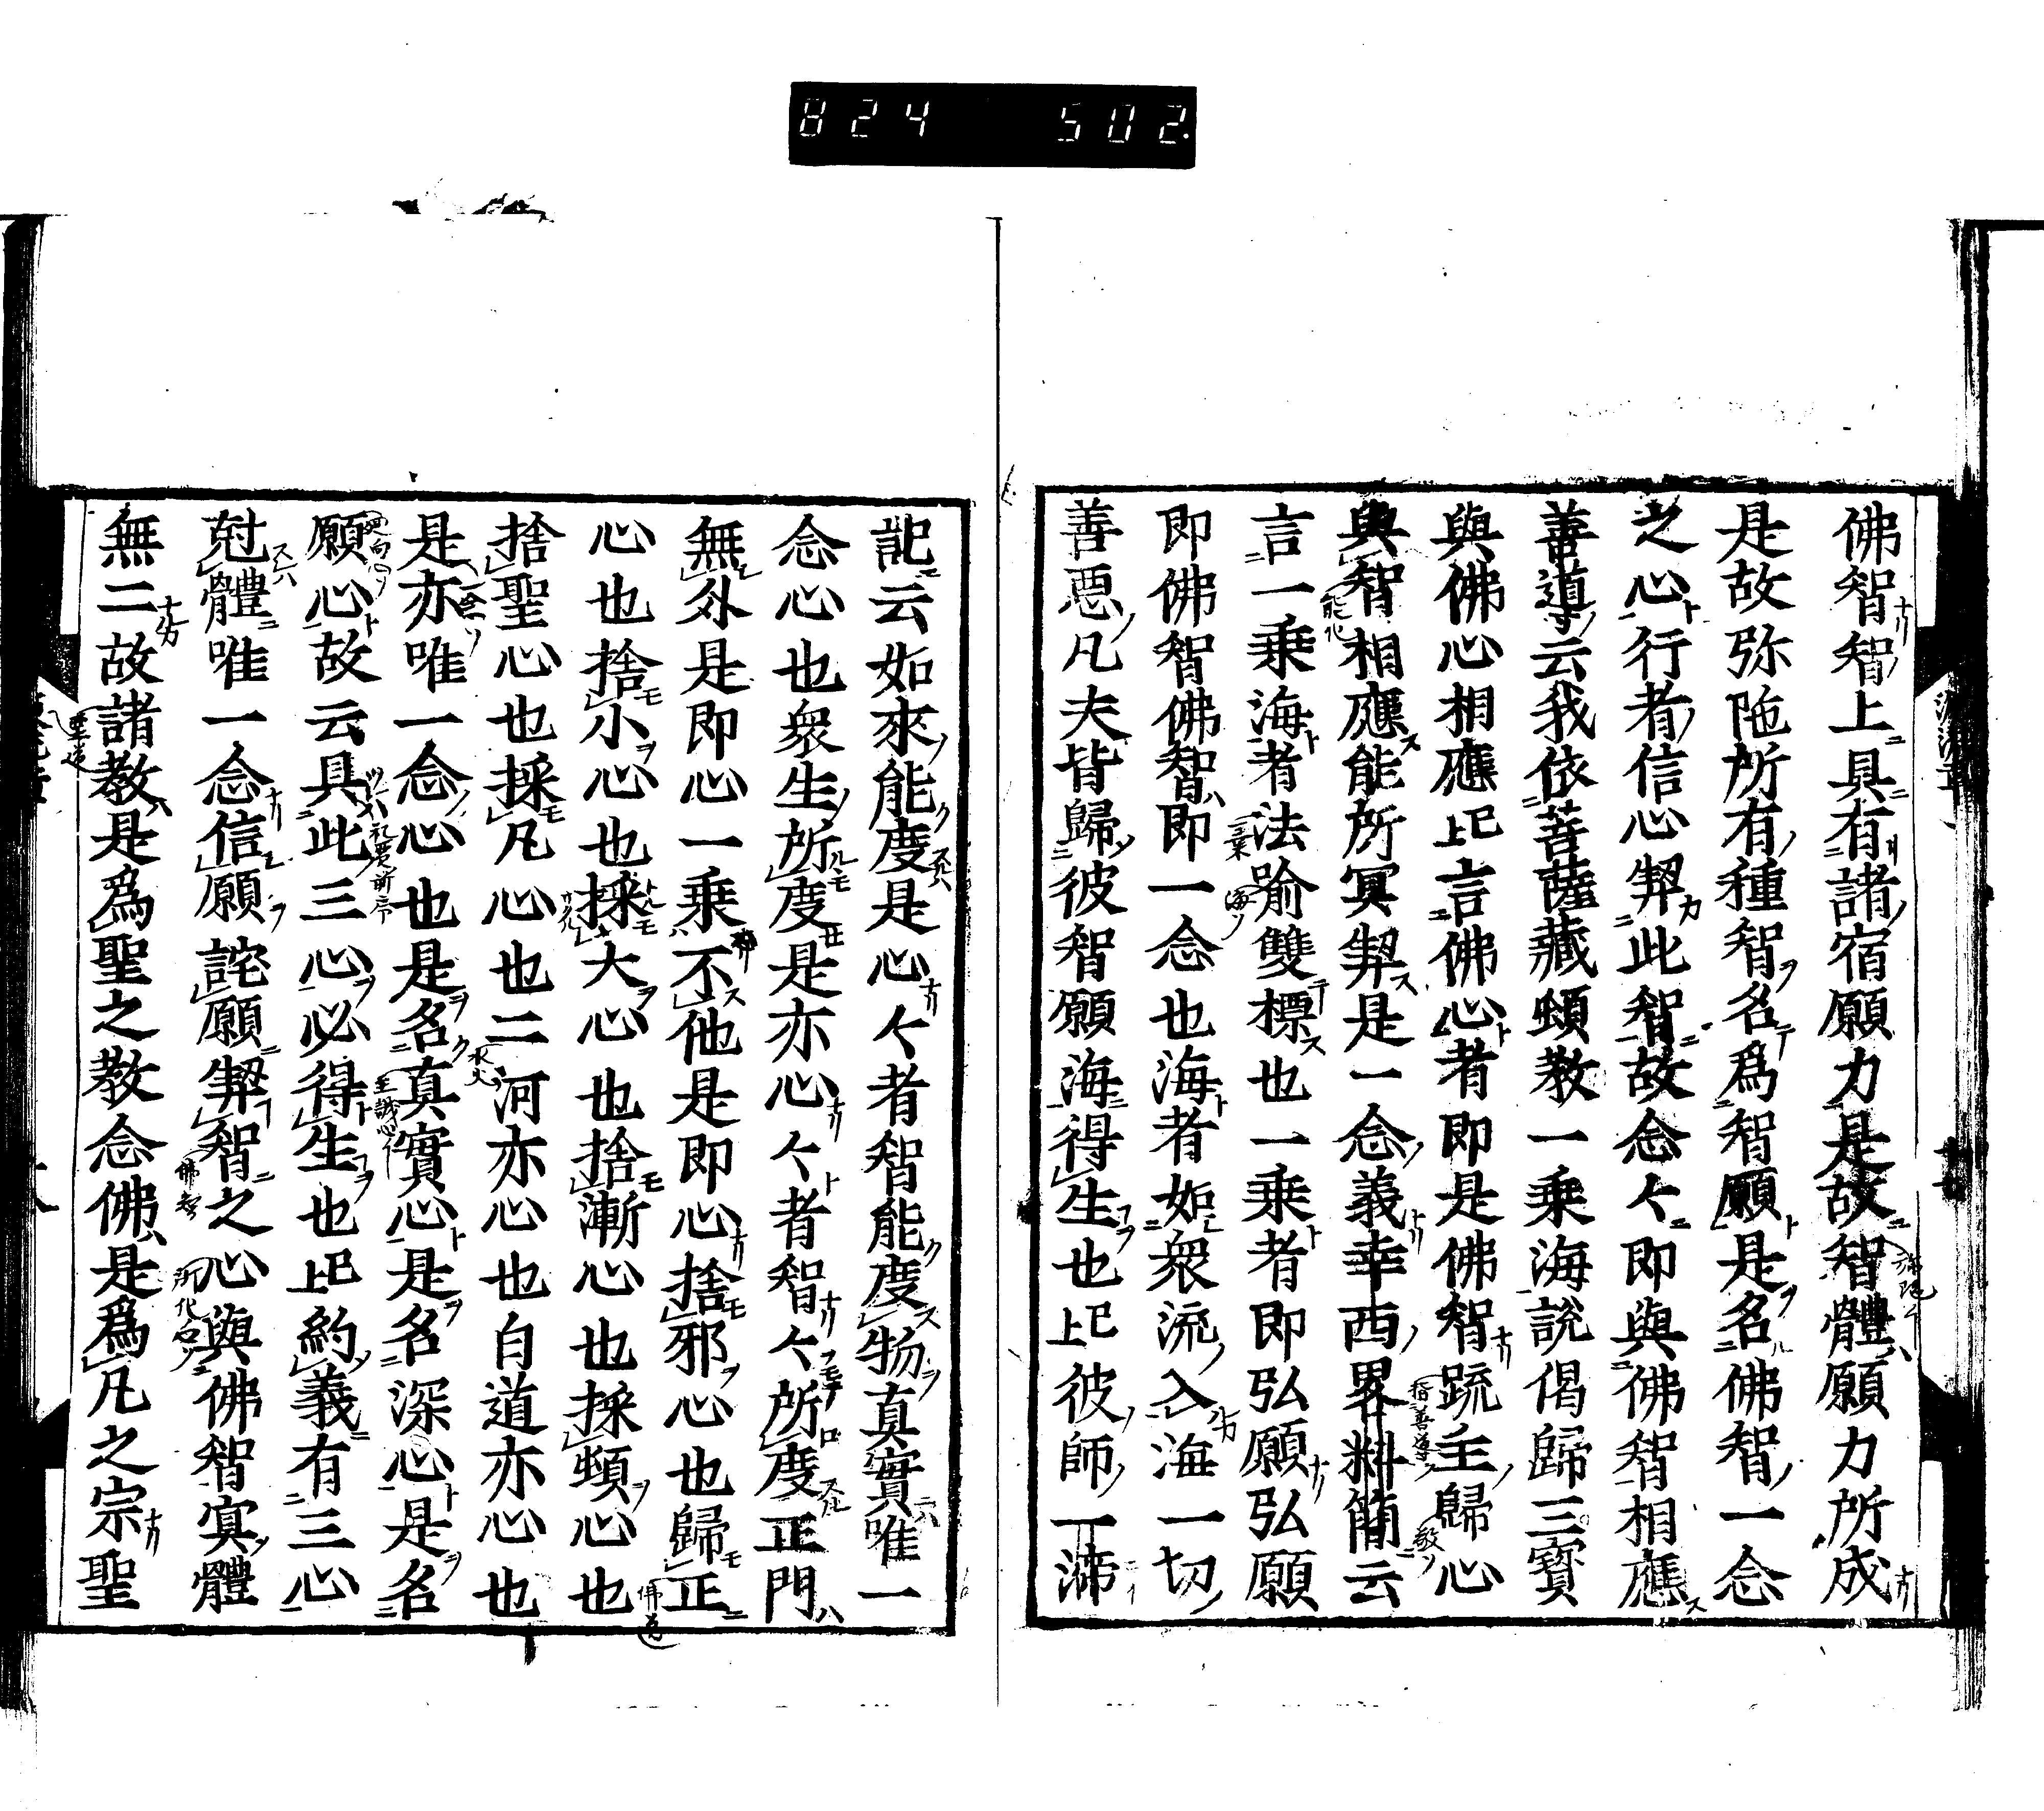 824 502
佛智智上具有諸宿願力是故智體願力所成
是故弥陁所有種智名爲智願是名佛智一念
之心行者信心契此智故念々即與佛智相應
善導云我依菩薩藏頓教一乗海說偈歸三寳
與佛心相應已上言佛心者即是佛智䟽主歸心
與智相應能所冥契是一念義幸西畧料簡云
言一乗海者法喻雙標也一乗者即弘願弘願
即佛智佛智即一念也海者如衆流入海一切
善惡凡夫皆歸彼智願海得生也已上彼師一渧
記云如來能度是心々者智能度物真實唯一
念心也衆生所度是亦心々者智々所度正門
無外是即心一乗不他是即心捨邪心也歸正
心也捨小心也採大心也捨漸心也採頓心也
捨聖心也採凡心也二河亦心也白道亦心也
是亦唯一念心也是名真實心是名深心是名
願心故云具此三心必得生也已上約義有三心
尅體唯一念信願詫願契智之心與佛智寘體
無二故諸教是爲聖之教念佛是爲凡之宗聖